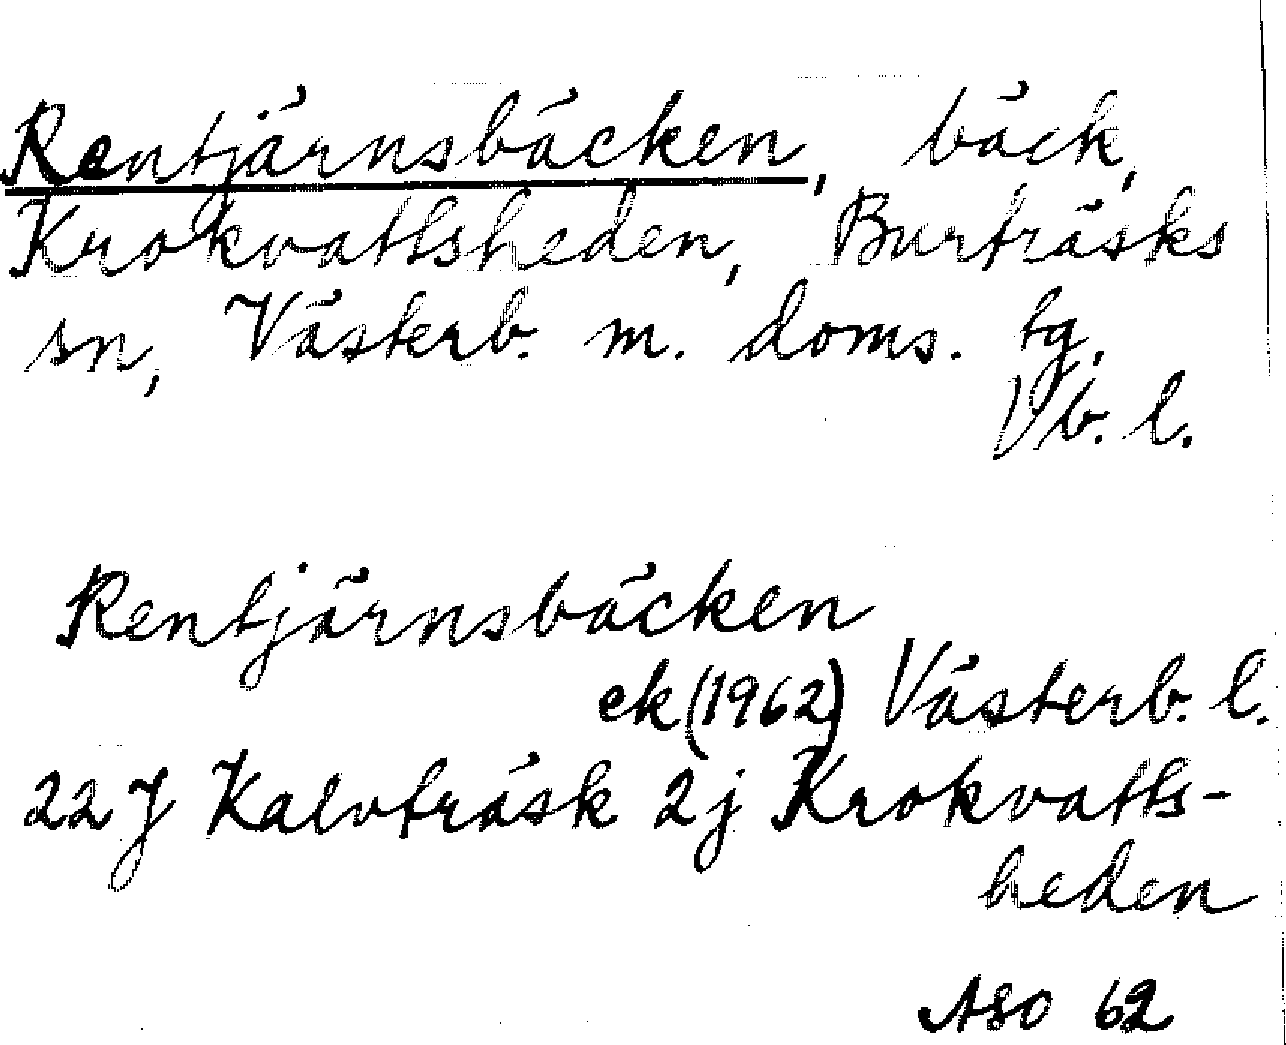 Rentjärnsbäcken, bäck,
Krokvattsheden, Burträsks
sn, Västerb. m. doms. tg,
Vb. l.
Rentjärnsbäcken
ek (1962) Västerb. l.
22 J Kalvträsk 2j Krokvatts-
heden
ASO 62